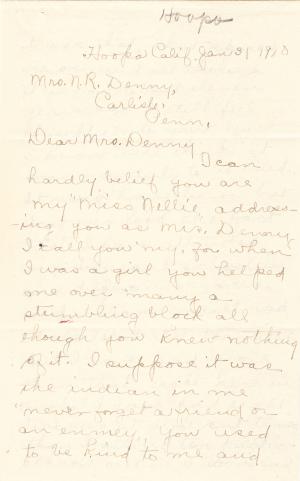 Hoopa
Hoopa Calif. Jan 31 1910
Mrs. N. R. Denny,
Carlisle,
Penn,
Dear Mrs. Denny
I can
hardly belief you are
my "Miss Nellie" address-
-ing you as Mrs. Denny
I call you my, for when
I was a girl you helped
me over many a
stumbling block all
though you knew nothing
of it. I suppose it was
the indian in me
"never forget a friend or
an enmey. You used
to be kind to me and